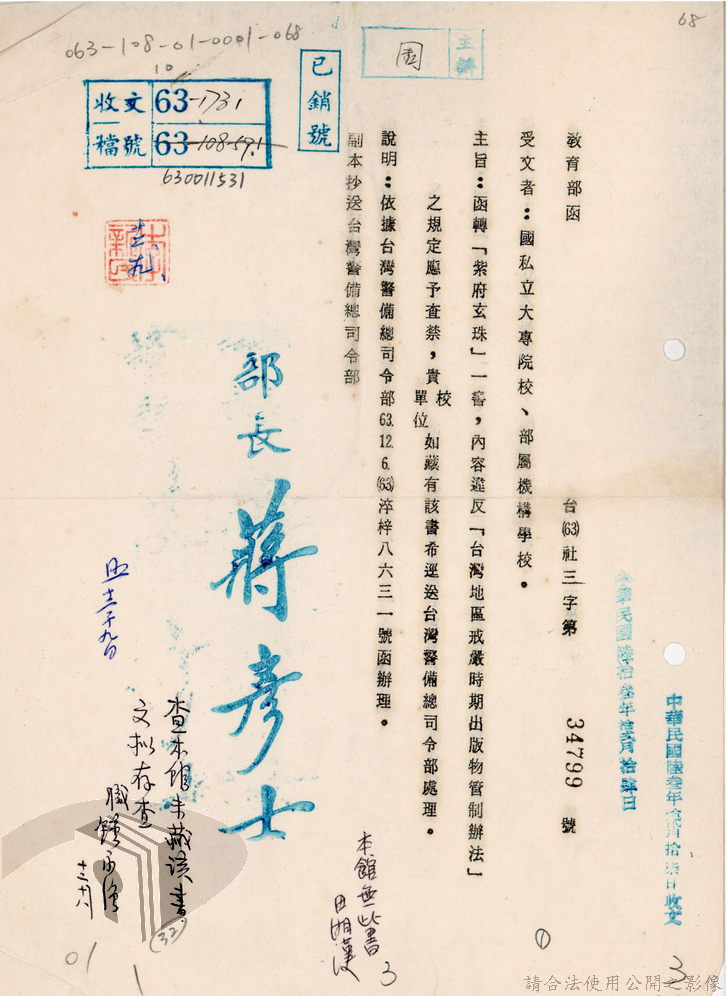 68
063-108-01-0001-068
10
主辦
已銷號
收文 63-1731
檔號 63-108-59.1
630011531
教育部函
台(63)社三字第 34799 號
中華民國陸拾叁年拾貳月拾肆日
受文者：國私立大專院校、部屬機構學校。
主旨：函轉「紫府玄珠」一書，內容違反「台灣地區戒嚴時期出版物管制辦法」
之規定應予查禁，貴校單位如藏有該書希逕送台灣警備總司令部處理。
說明：依據台灣警備總司令部63.12.6.(63)淬梓八六三一號函辦理。
副本抄送台灣警備總司令部
部長 蔣彥士
中華民國陸叁年 月拾 日收文
查本館未藏該書
文擬存查
職鍾
十二、十八
(32)
本館無此書
01
1
3
①
3
請合法使用公開之影像